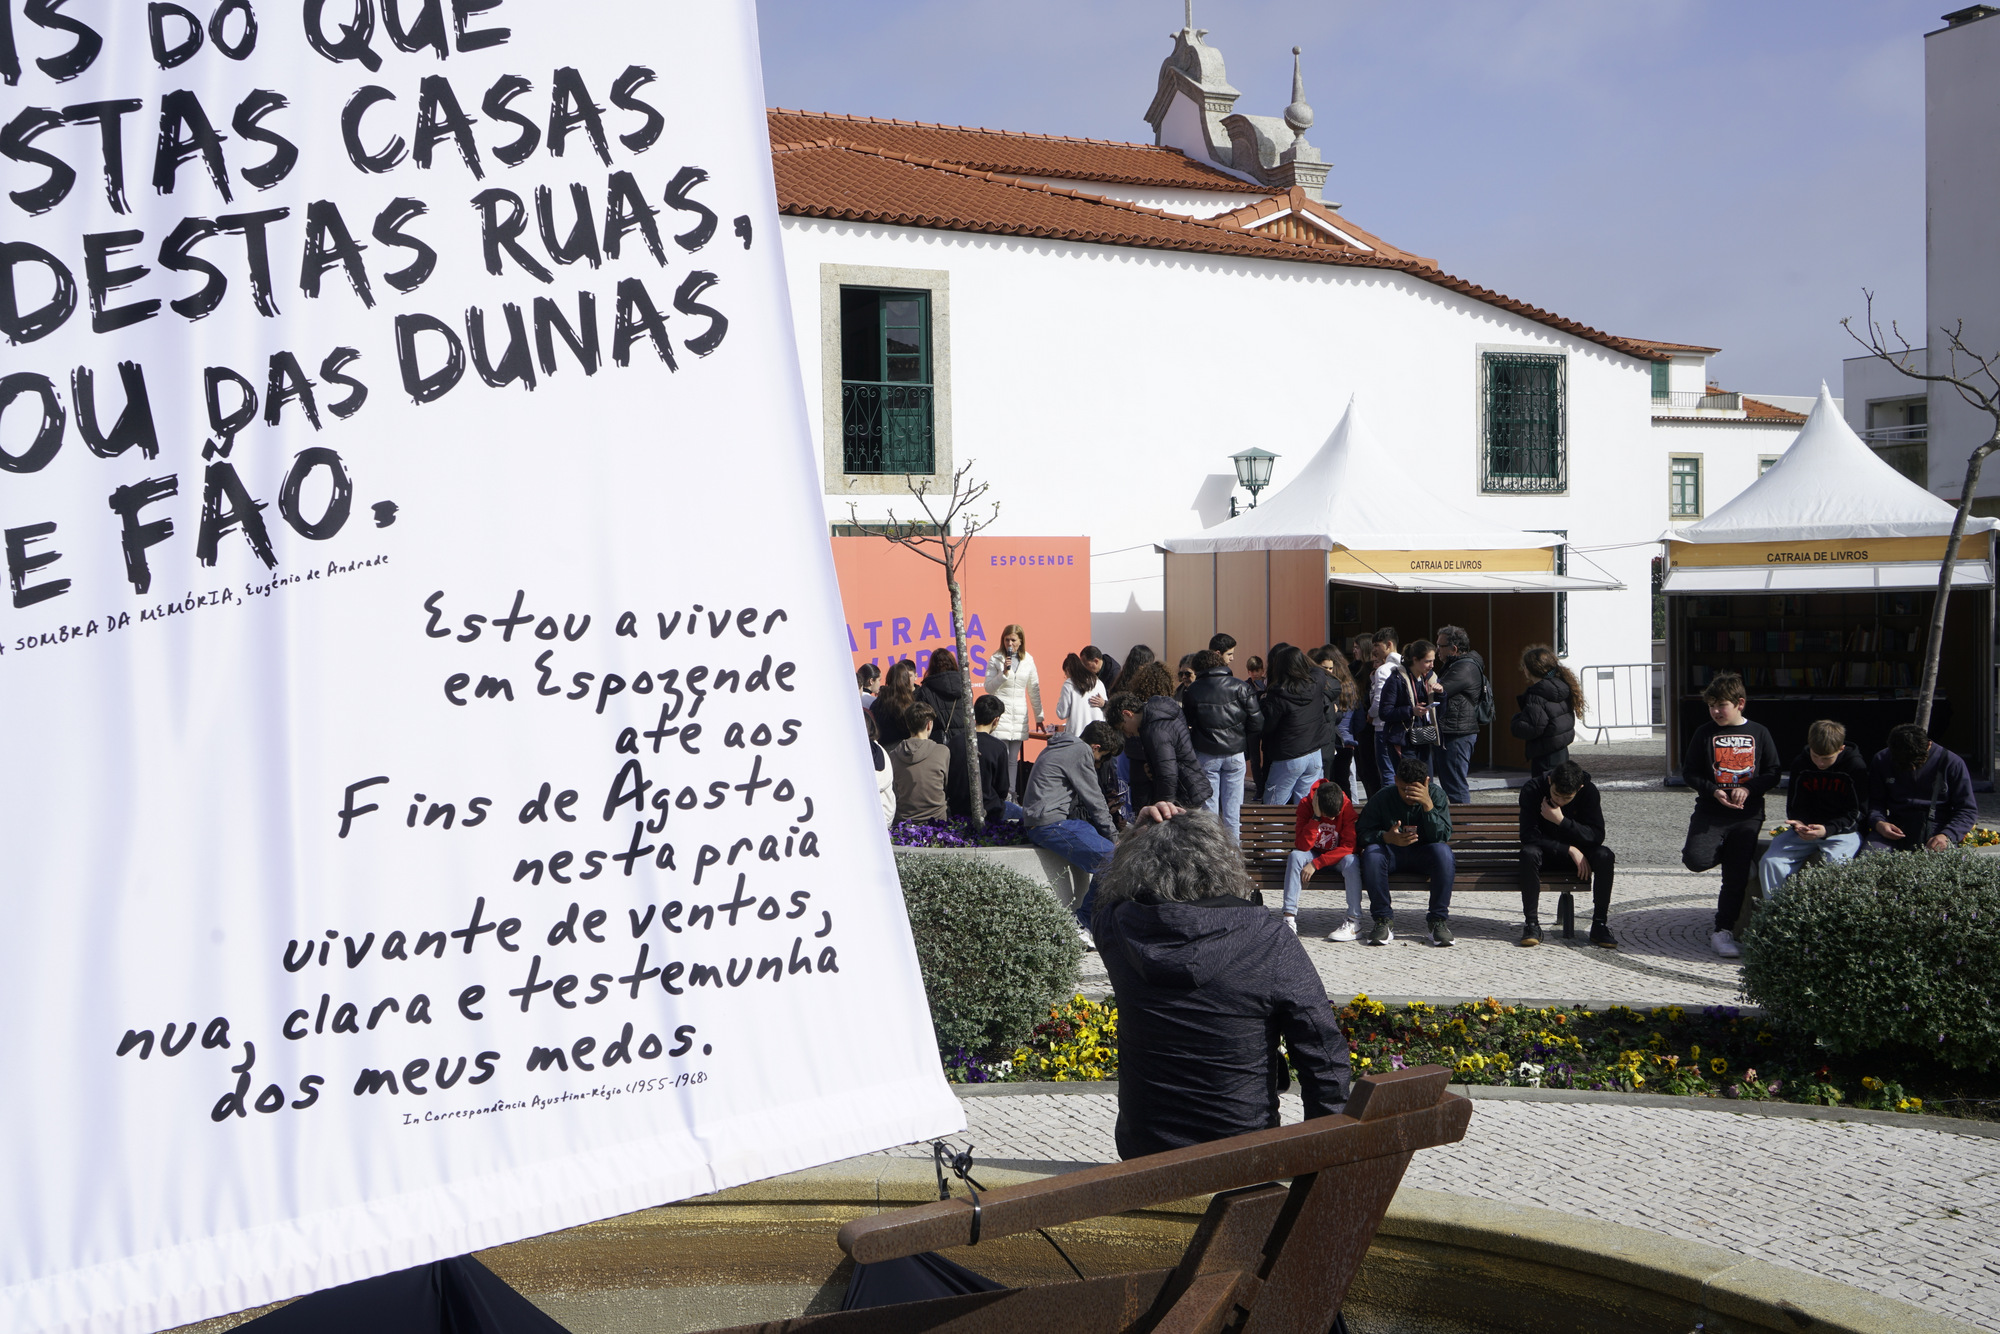 DO QUE
STAS CASAS
DESTAS RUAS,
OU DAS DUNAS
E FÃO.
SOMBRA DA MEMÓRIA, Eugénio de Andrade
Estou a viver
em Espozende
até aos
Fins de Agosto,
nesta praia
uivante de ventos,
nua, clara e testemunha
dos meus medos.
In Correspondência Agustina-Régio (1955-1968)
ESPOSENDE
ATRAIA
IVROS
10 CATRAIA DE LIVROS
09 CATRAIA DE LIVROS
SKATE